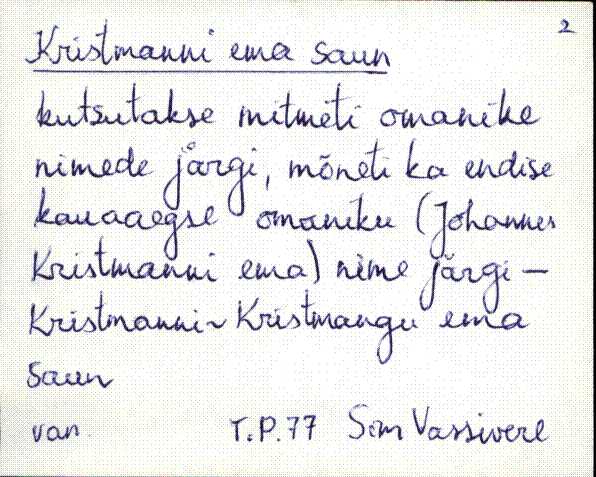 2
Kristmanni ema saun
kutsutakse mitmeti omanike
nimede järgi, mõneti ka endise
kauaaegse omaniku (Johannes
Kristmanni ema) nime järgi –
Kristmanni ~ Kristmangu ema
saun
van. T.P.77 Som Vassivere